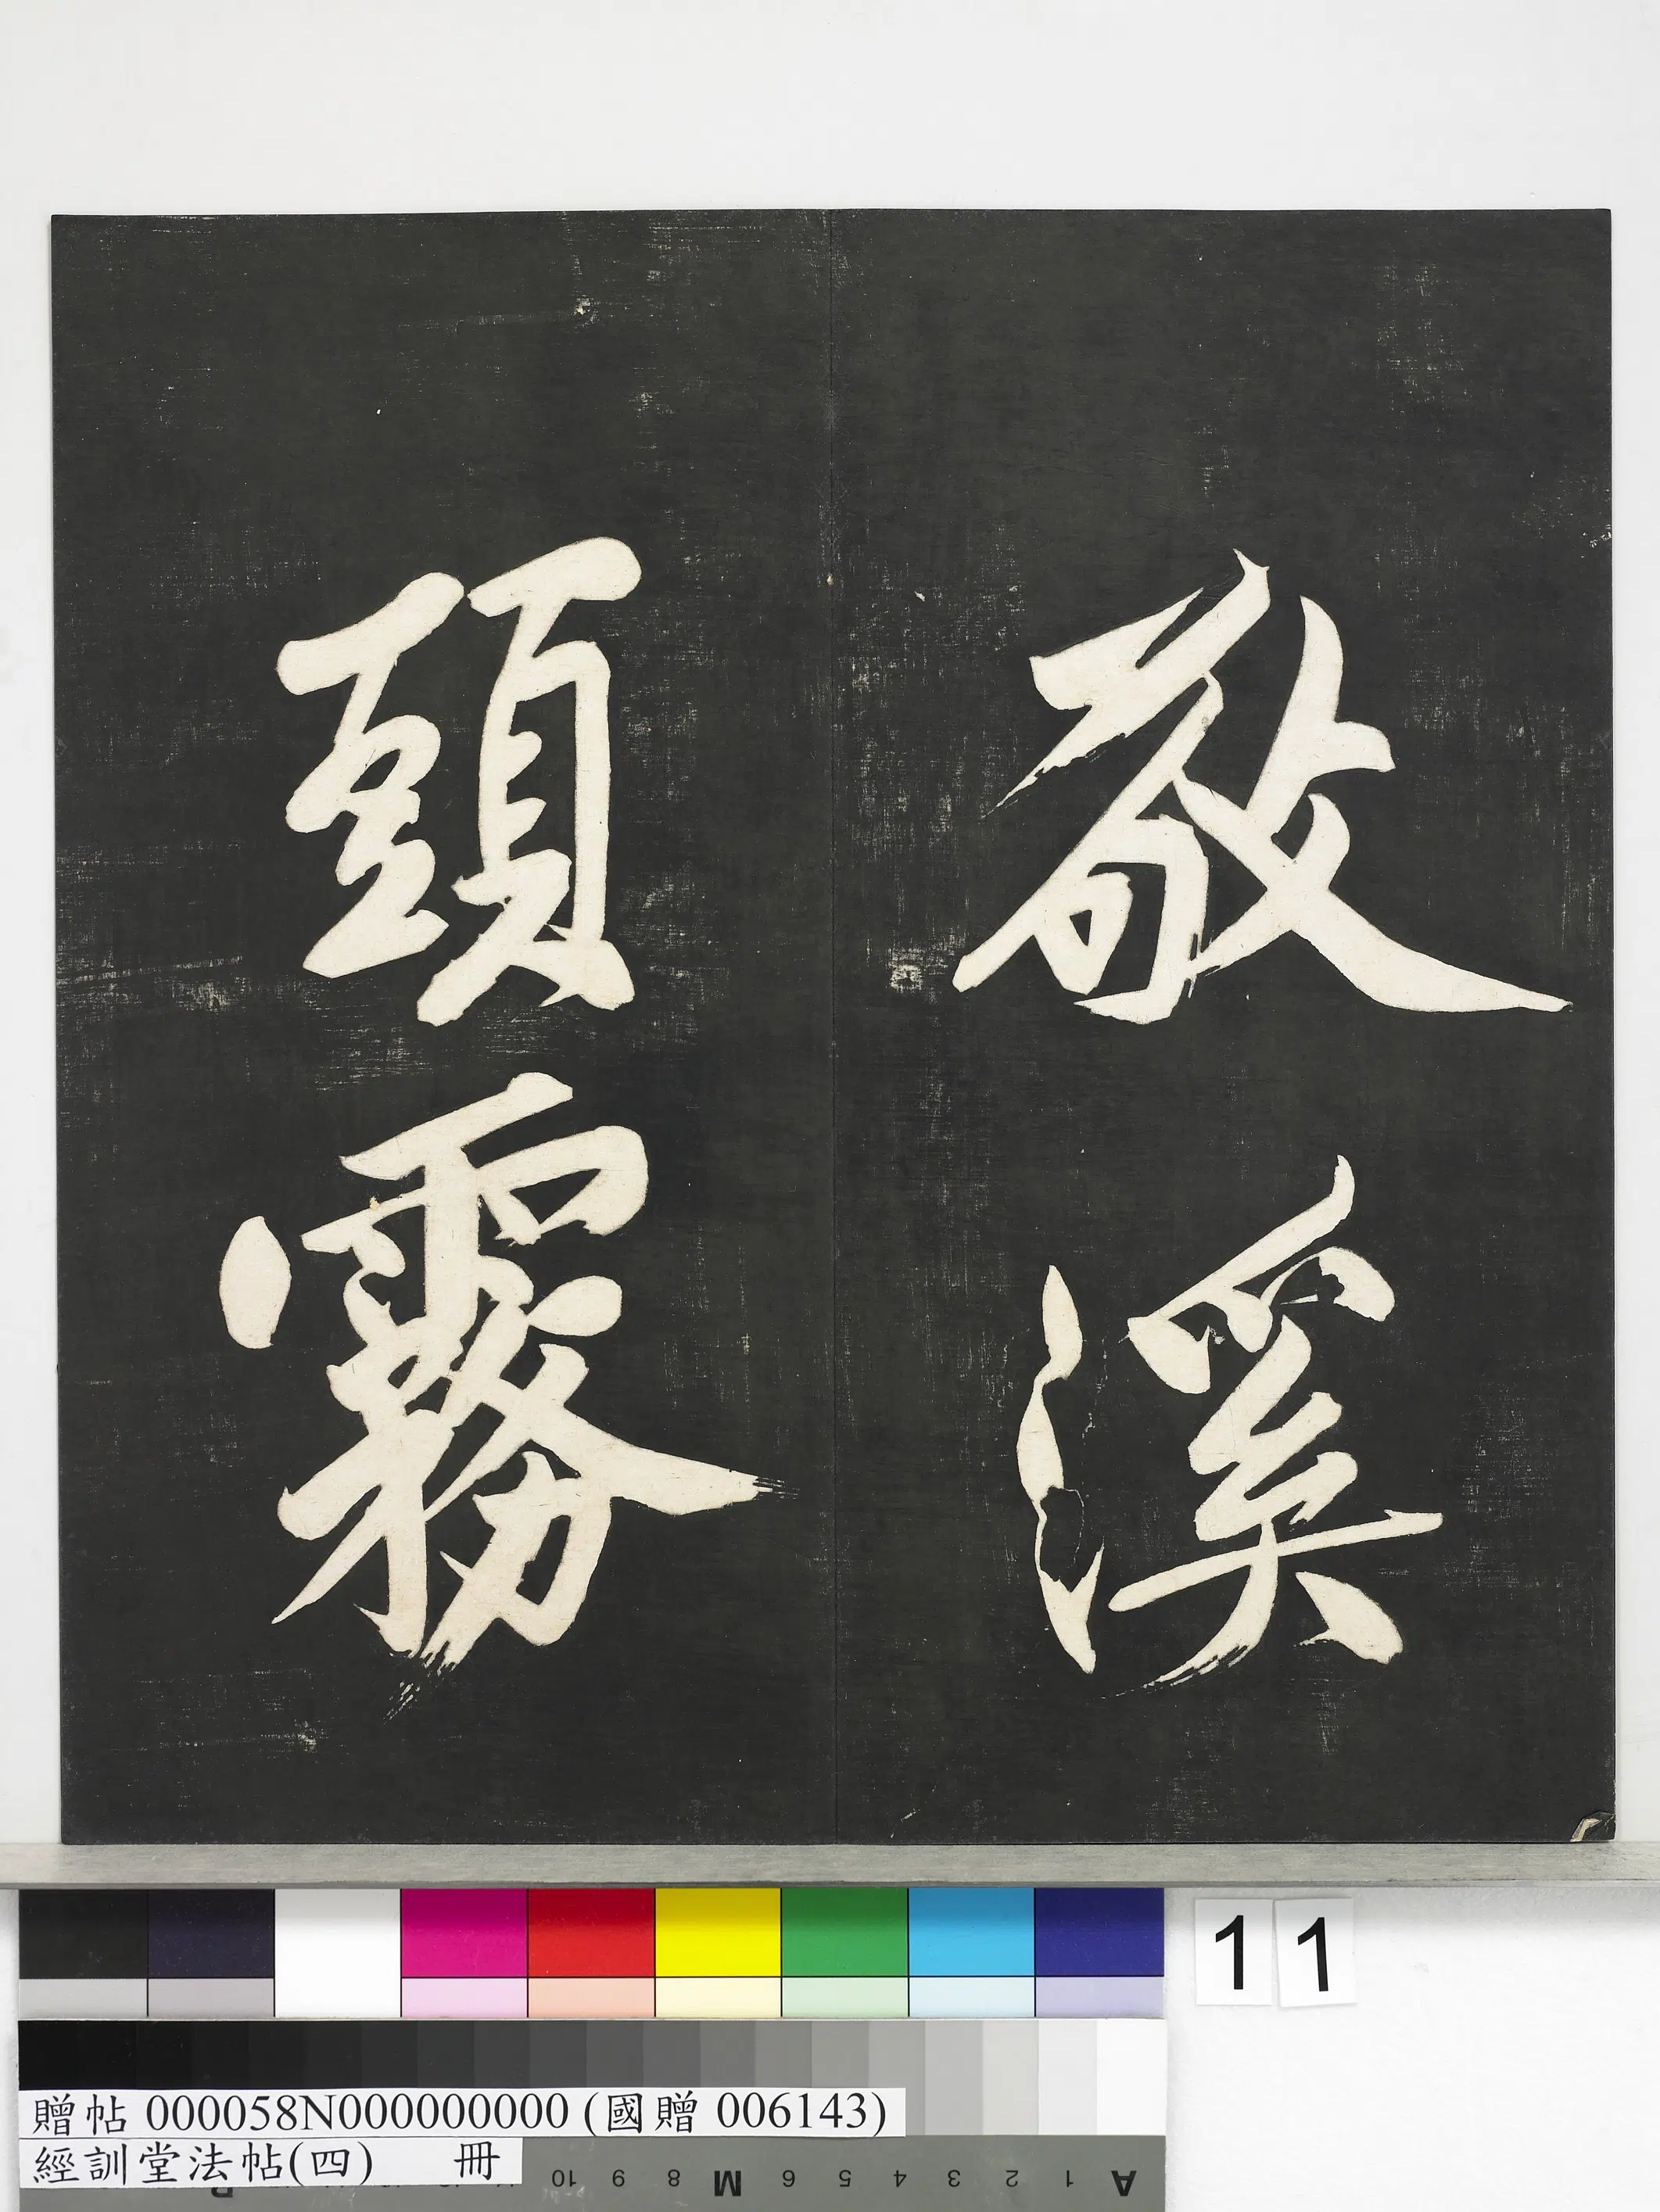 散溪
頭霧
11
贈帖 000058N000000000 (國贈 006143)
經訓堂法帖(四) 冊
10 9 8 M 6 5 4 3 2 1 A